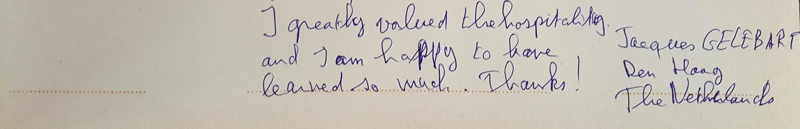 I greatly valued the hospitality.
and I am happy to have
learned so much. Thanks!
Jacques GELEBART
Den Haag
The Netherlands